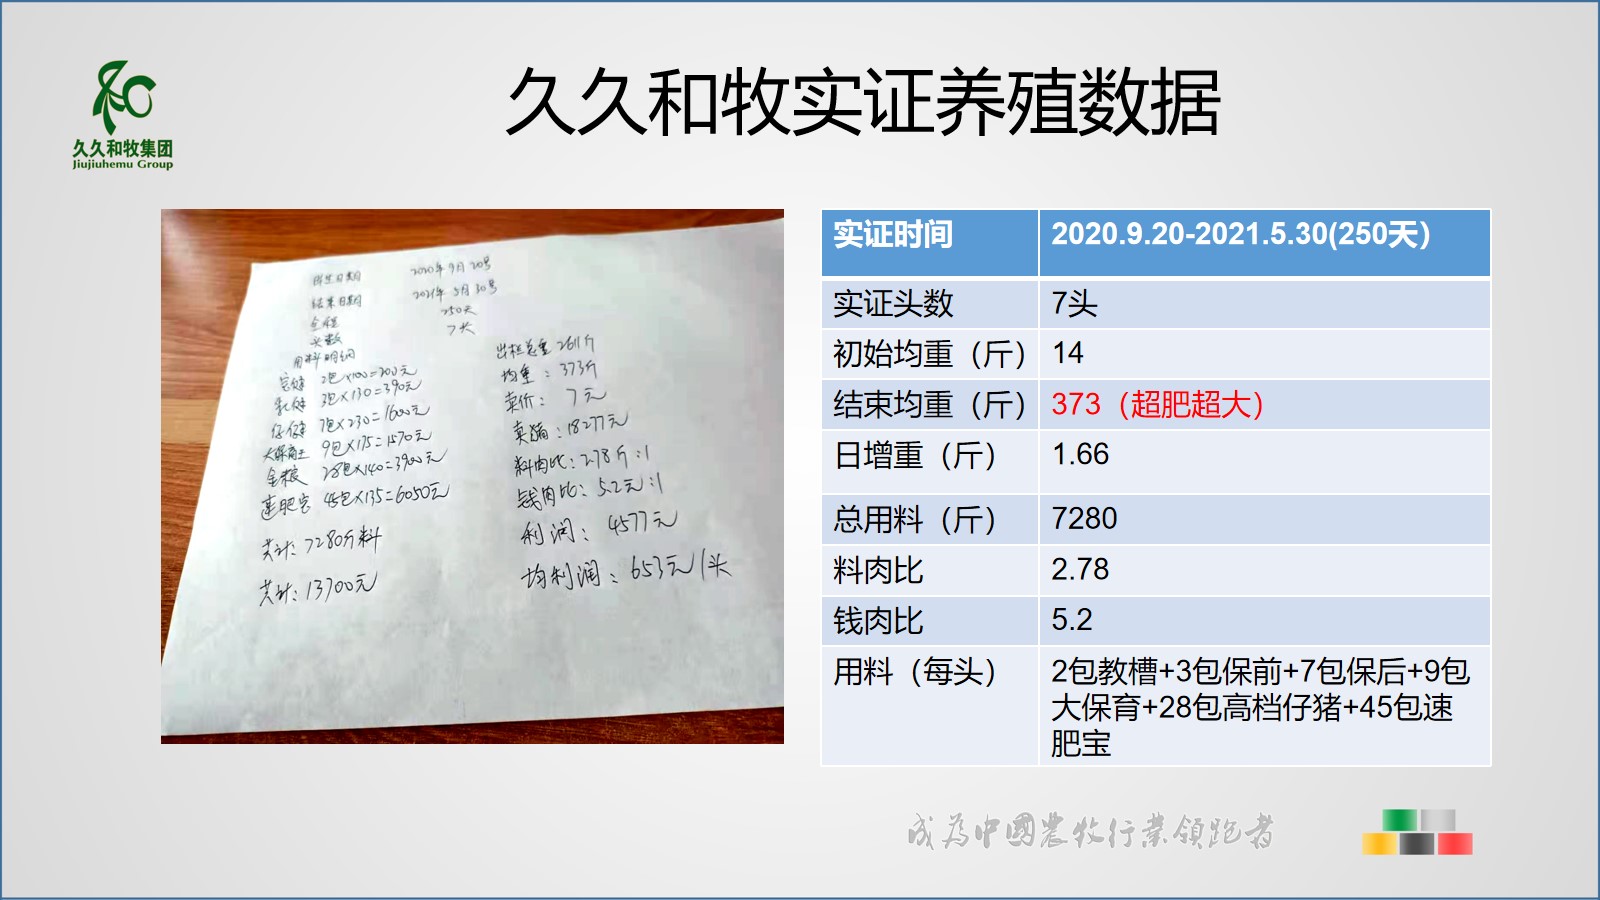 久久和牧集团
Jiujiuhemu Group
久久和牧实证养殖数据
出生日期 2020年9月20号
结束日期 2021年5月30号
全程 250天
头数 7头
用料明细
2包×100=200元
乳健 3包×130=390元
仔健 7包×230=1600元
大保育王 9包×175=1570元
金粮 28包×140=3900元
速肥宝 45包×135=6050元
共计:7280斤料
共计:13700元
出栏总重 2611斤
均重:373斤
卖价:7元
卖猪:18277元
料肉比:2.78斤:1
钱肉比:5.2元:1
利润:4577元
均利润:653元/头
实证时间 2020.9.20-2021.5.30(250天)
实证头数 7头
初始均重(斤) 14
结束均重(斤) 373(超肥超大)
日增重(斤) 1.66
总用料(斤) 7280
料肉比 2.78
钱肉比 5.2
用料(每头) 2包教槽+3包保前+7包保后+9包
大保育+28包高档仔猪+45包速
肥宝
成为中國農牧行業領跑者